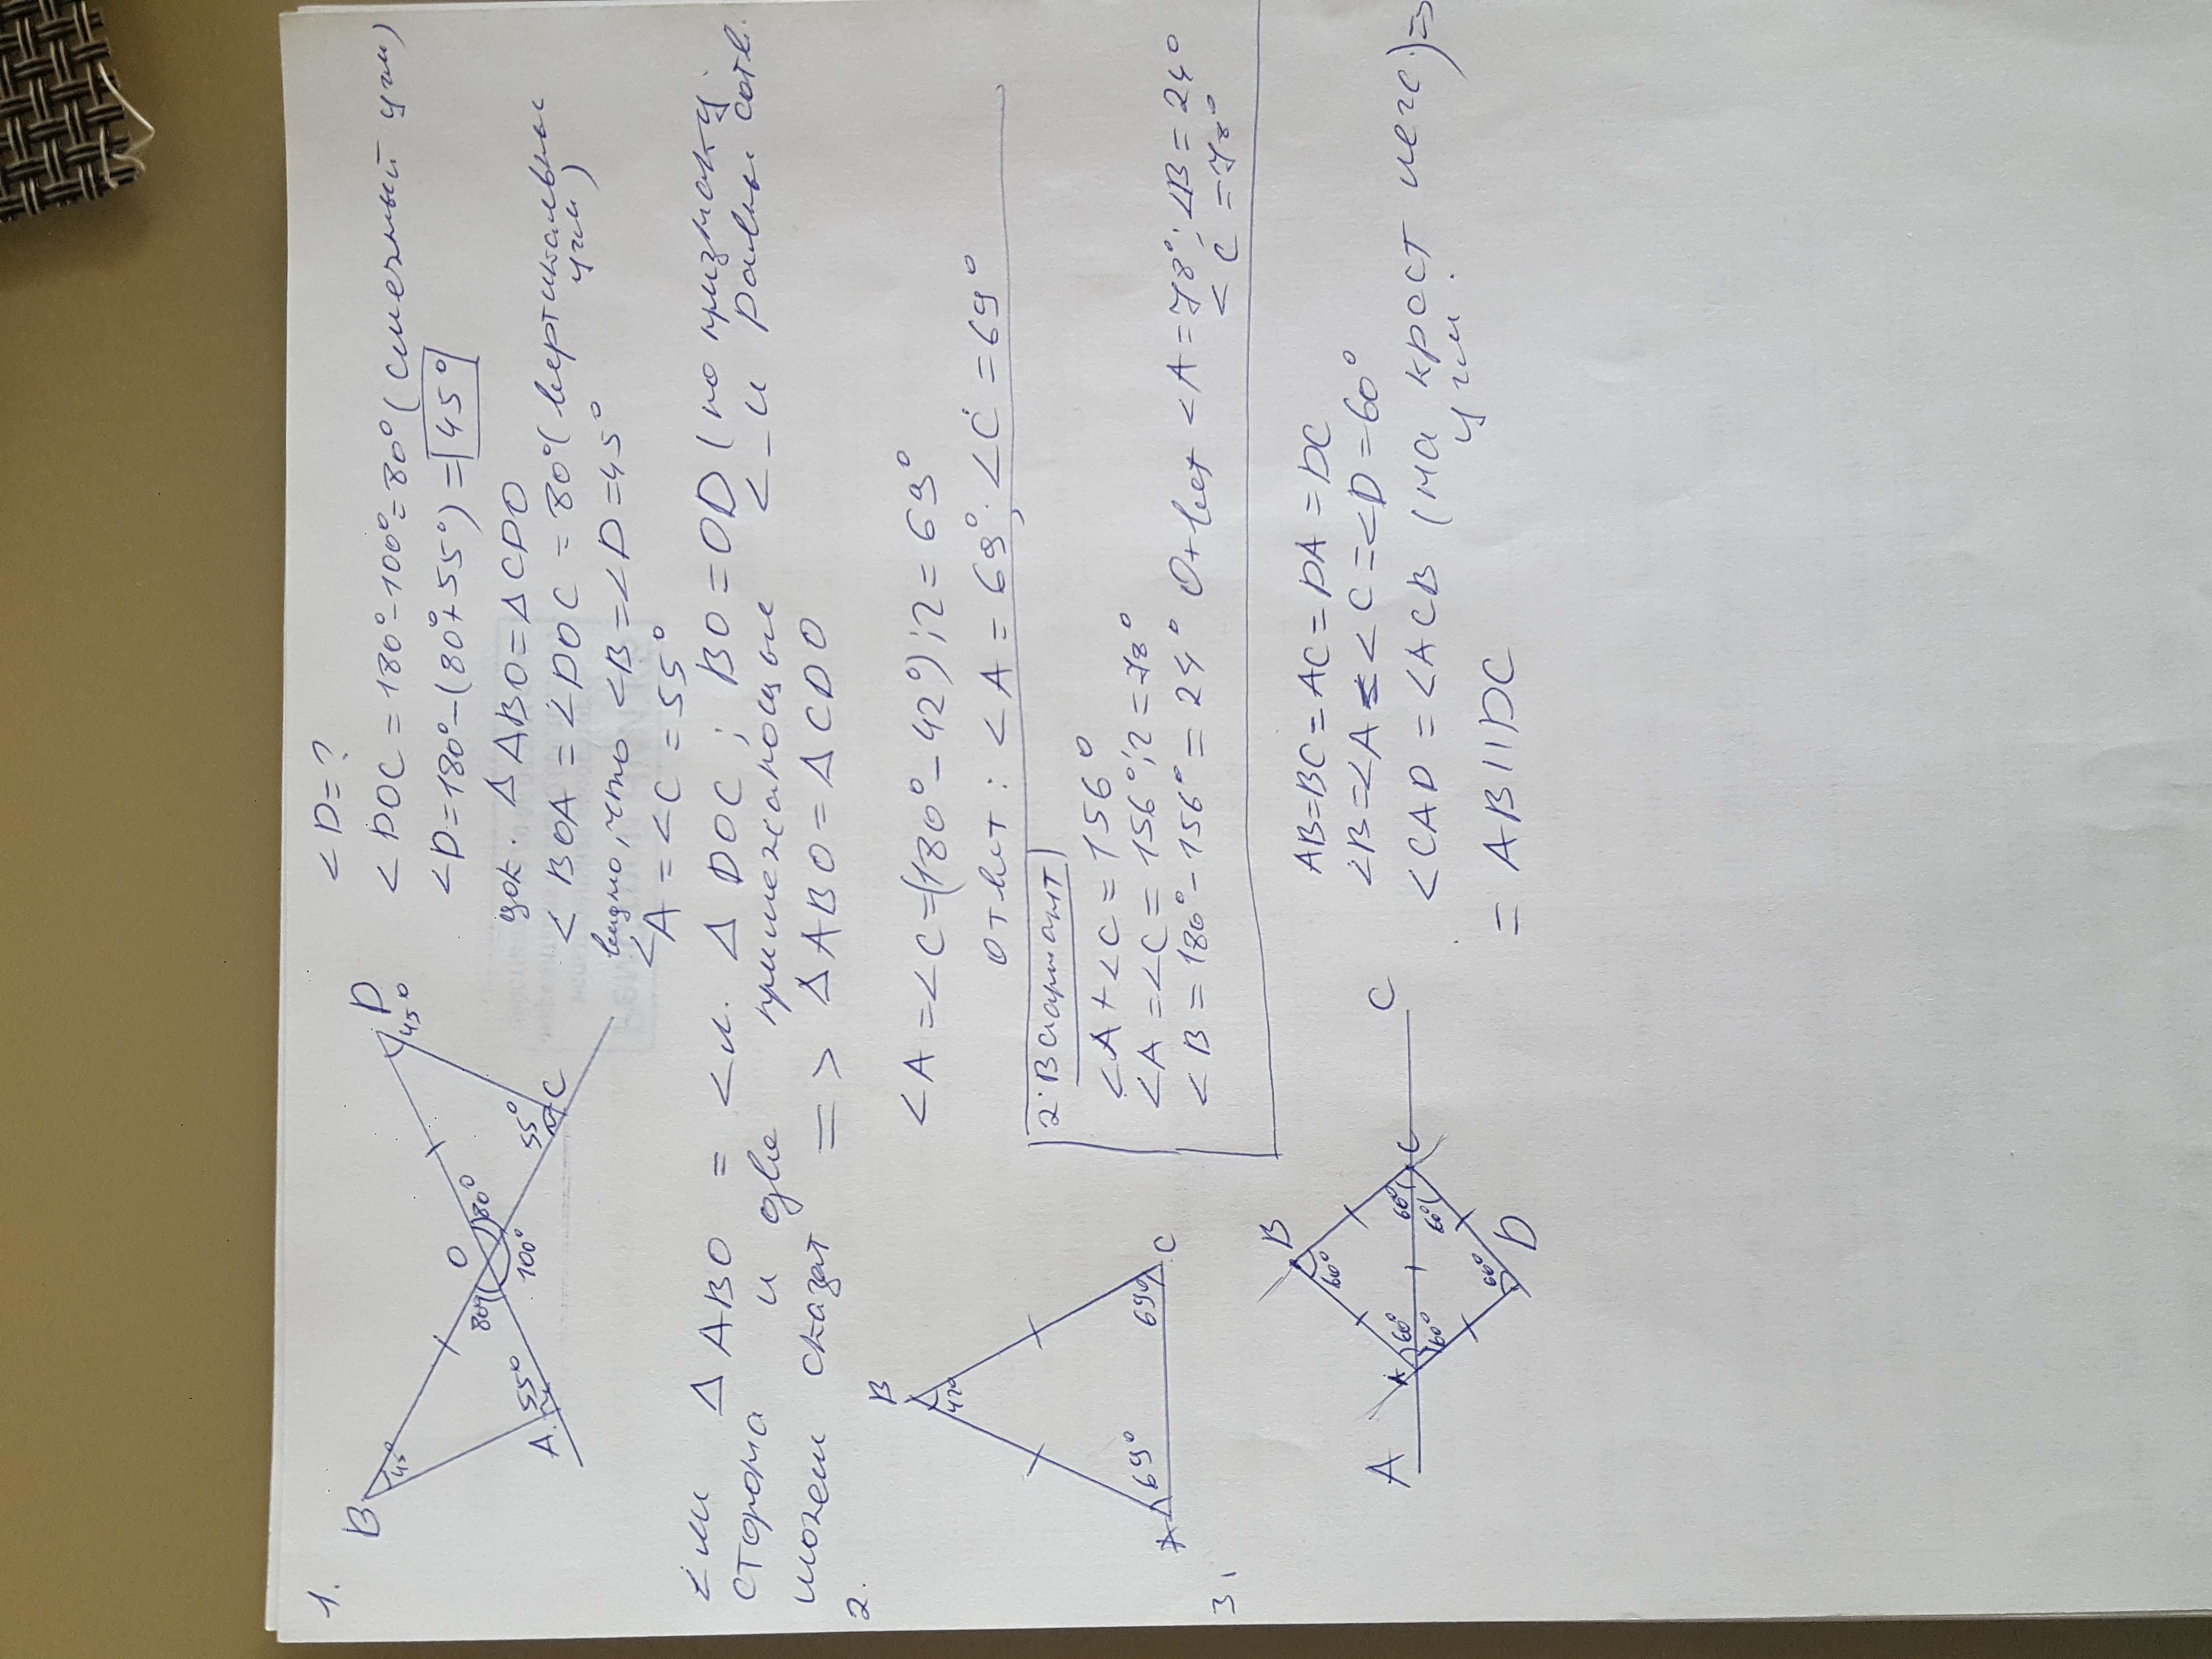 1.
B
45°
O
D
45°
80°
80°
100°
55°
55°
A
C
<D=?
<DOC=180°-100°=80° (смежный угли)
<D=180°-(80°+55°)=45°
док. Δ ABO=Δ CDO
< BOA = <DOC = 80° (вертикальные
угли)
видно, что <B=<D=45°
<A=<C=55°
<ли Δ ABO = <и. Δ DOC; BO=OD (по признаку:
сторона и две прилежающие <-и равны соотв.
можем сказат => Δ ABO=Δ CDO
2.
B
42°
69°
69°
A
C
<A=<C=(180°-42°):2=69°
Ответ: <A=69°; <C=69°
2. Вариант
<A+<C=156°
<A=<C=156°:2=78°
<B=180°-156°=24° Ответ <A=78°; <B=24°
<C=78°
3.
B
60°
A
A
60°
60°
60°
60°
60°
D
C
C
AB=BC=AC=DA=DC
<B=<A=<C=<D=60°
<CAD=<ACB (на крест леж)=>
угли.
= AB||DC